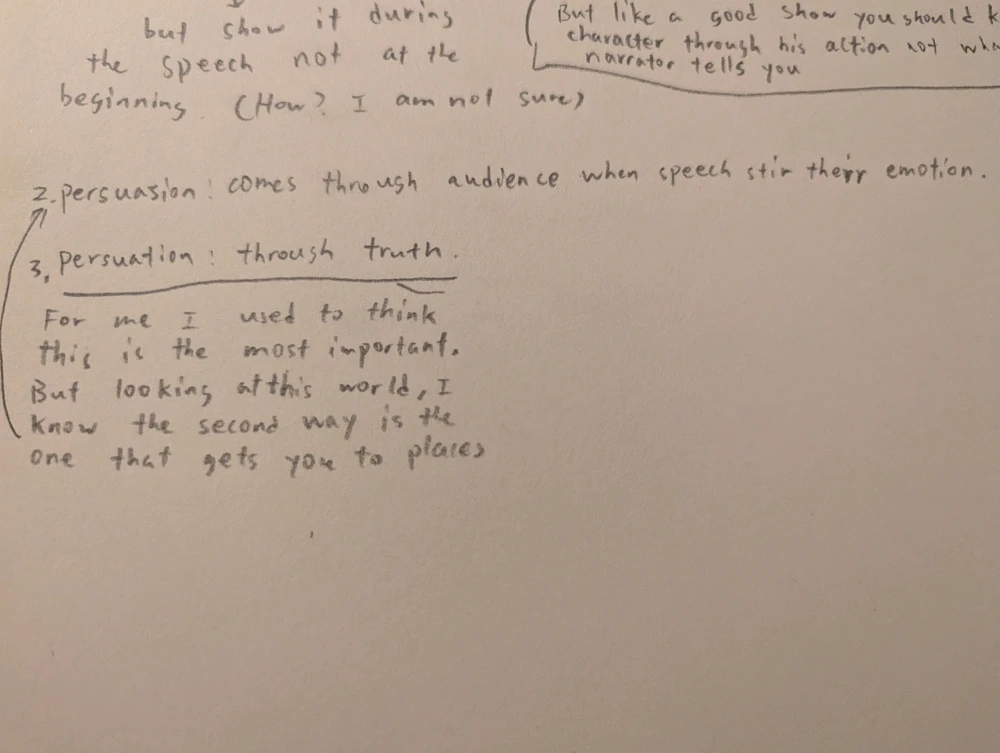 but show it during
the speech not at the
beginning. (How? I am not sure)
But like a good show you should
character through his action not
narrator tells you
2. persuasion: comes through audience when speech stir their emotion.
3, persuation: through truth.
For me I used to think
this is the most important.
But looking at this world, I
know the second way is the
one that gets you to places